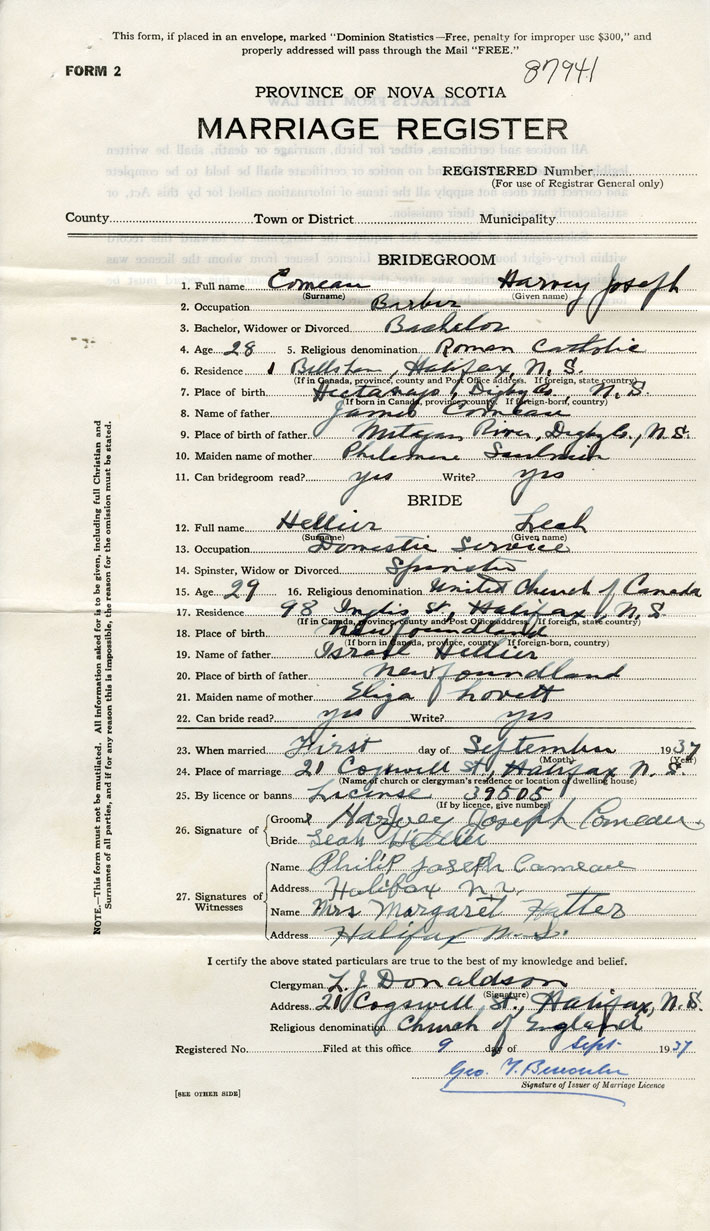 This form, if placed in an envelope, marked "Dominion Statistics—Free, penalty for improper use $300," and
properly addressed will pass through the Mail "FREE."
FORM 2
87941
PROVINCE OF NOVA SCOTIA
MARRIAGE REGISTER
REGISTERED Number
(For use of Registrar General only)
County Town or District Municipality
BRIDEGROOM
1. Full name Comeau Harvey Joseph
(Surname) (Given name)
2. Occupation Barber
3. Bachelor, Widower or Divorced Bachelor
4. Age 28 5. Religious denomination Roman Catholic
6. Residence Halifax, N. S.
(If in Canada, province, county and Post Office address. If foreign, state country)
7. Place of birth Digby Co., N. S.
(If born in Canada, province, county. If foreign-born, country)
8. Name of father James Comeau
9. Place of birth of father Metegan River, Digby Co., N.S.
10. Maiden name of mother Philomene
11. Can bridegroom read? yes Write? yes
BRIDE
12. Full name Hellier Leah
(Surname) (Given name)
13. Occupation Domestic Service
14. Spinster, Widow or Divorced Spinster
15. Age 29 16. Religious denomination United Church of Canada
17. Residence 98 Inglis St, Halifax, N. S.
(If in Canada, Province, county and Post Office address. If foreign, state country)
18. Place of birth Newfoundland
(If born in Canada, province, county. If foreign-born, country)
19. Name of father Israel Hellier
20. Place of birth of father Newfoundland
21. Maiden name of mother Eliza Lovett
22. Can bride read? yes Write? yes
23. When married First day of September 1937
(Month) (Year)
24. Place of marriage 21 Cogswell St, Halifax N. S.
(Name of church or clergyman's residence or location of dwelling house)
25. By licence or banns License 39505
(If by licence, give number)
26. Signature of
Groom Harvey Joseph Comeau
Bride Leah Hellier
27. Signatures of Witnesses
Name Philip Joseph Comeau
Address Halifax N.S.
Name Mrs Margaret
Address Halifax N.S.
I certify the above stated particulars are true to the best of my knowledge and belief.
Clergyman L. J. Donaldson
(Signature)
Address 21 Cogswell St., Halifax, N.S.
Religious denomination Church of England
Registered No. Filed at this office 9 day of Sept. 1937
Geo. T.
Signature of Issuer of Marriage Licence
[SEE OTHER SIDE]
NOTE.—This form must not be mutilated. All information asked for is to be given, including full Christian and
Surnames of all parties, and if for any reason this is impossible, the reason for the omission must be stated.